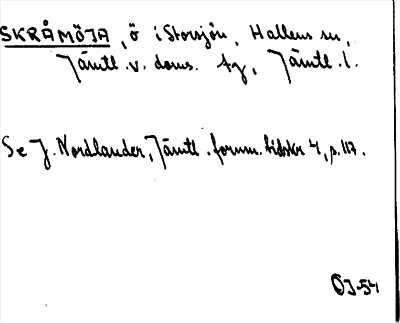 SKRÅMÖJA, ö i Storsjön, Hallens sn,
Jämtl. v. doms. tg, Jämtl. l.
Se J. Nordlander, Jämtl. fornm. tidskr 4, p. 117.
ÖJ-54